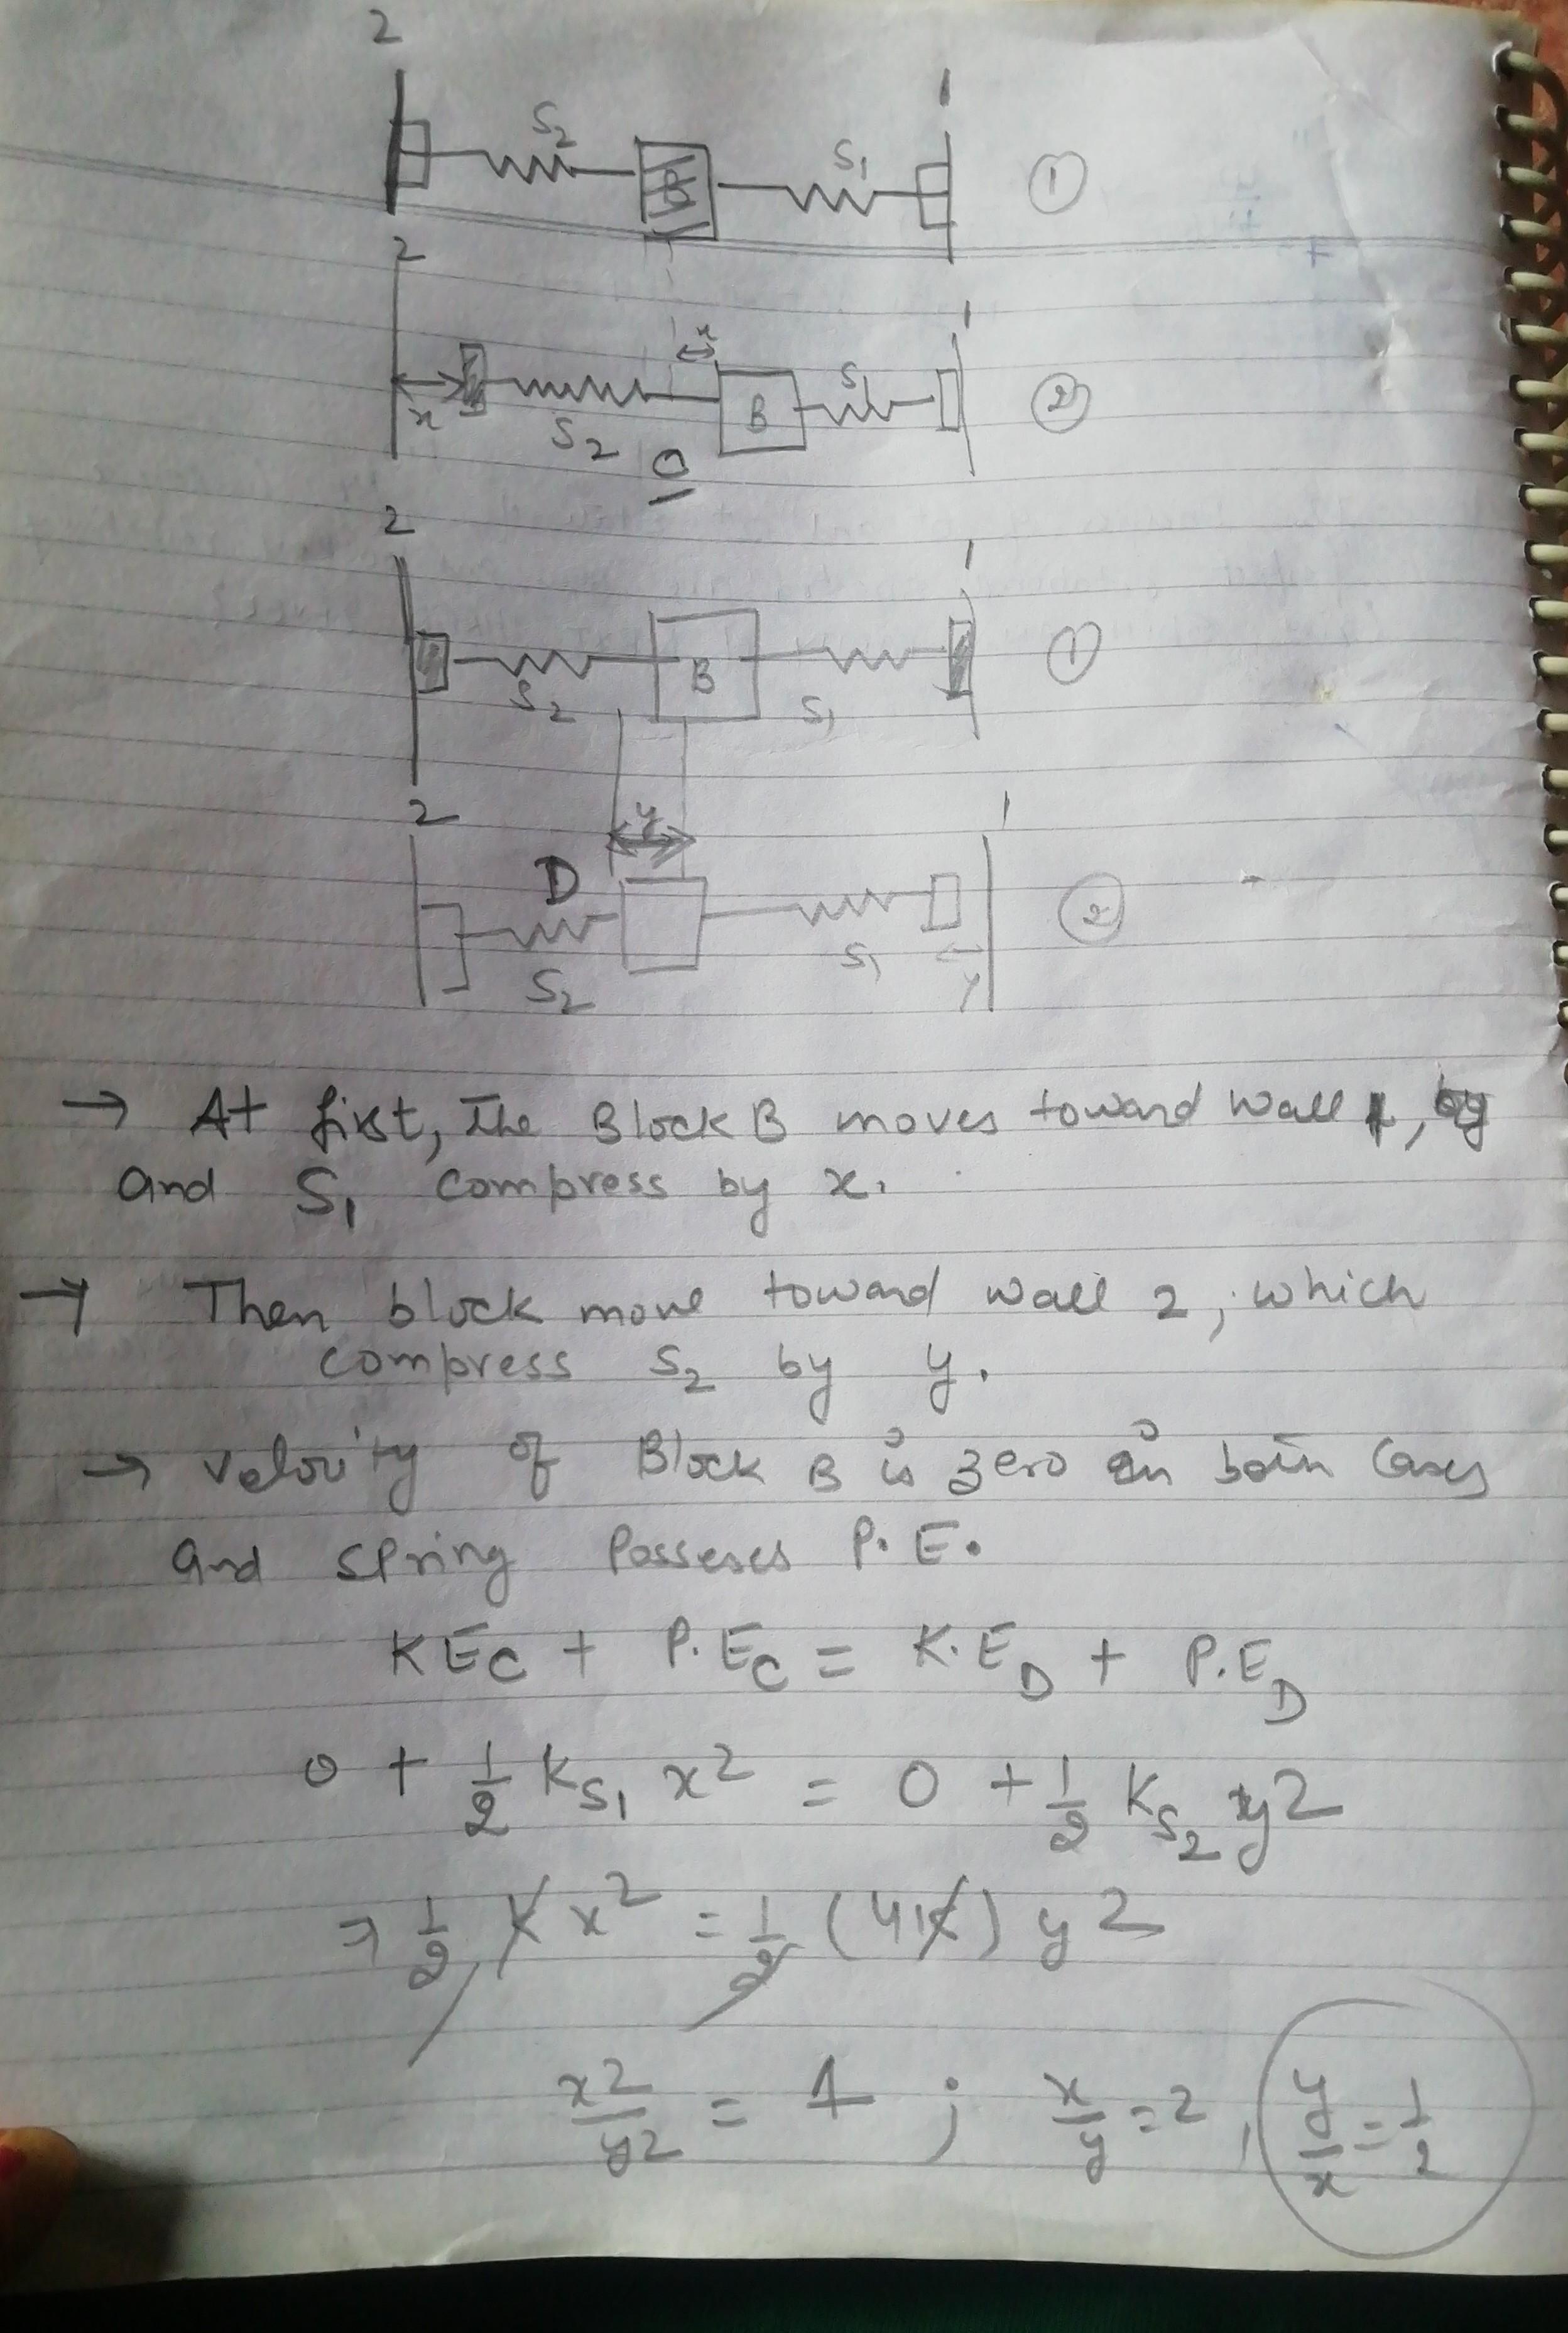 2
1
S2
B
S1
①
2
1
x
x
S2
B
S1
②
O
2
1
S2
B
S1
①
2
1
y
D
S2
S1
y
②
→ At first, The Block B moves toward wall 1, by
and S1 compress by x.
→ Then block move toward wall 2, which
compress S2 by y.
→ velocity of Block B is zero in both Cases
and spring Posseses P.E.
KEC + P.EC = K.ED + P.ED
0 + 1/2 KS1 x2 = 0 + 1/2 KS2 y2
⇒ 1/2 K x2 = 1/2 (4K) y2
x2/y2 = 4 ; x/y = 2, y/x = 1/2